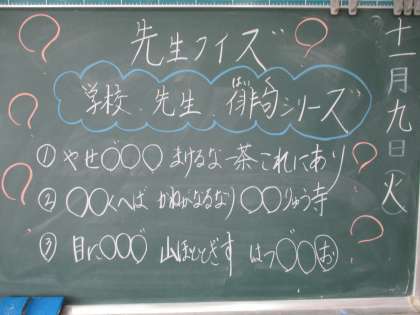 十一月九日(火)
先生クイズ
学校、先生、俳句シリーズ
はいく
①やせ〇〇〇 まけるな一茶 これにあり
②〇〇くへば かねがなるなり 〇〇りゅう寺
③目に〇〇〇 山ほととぎす はつ〇〇お